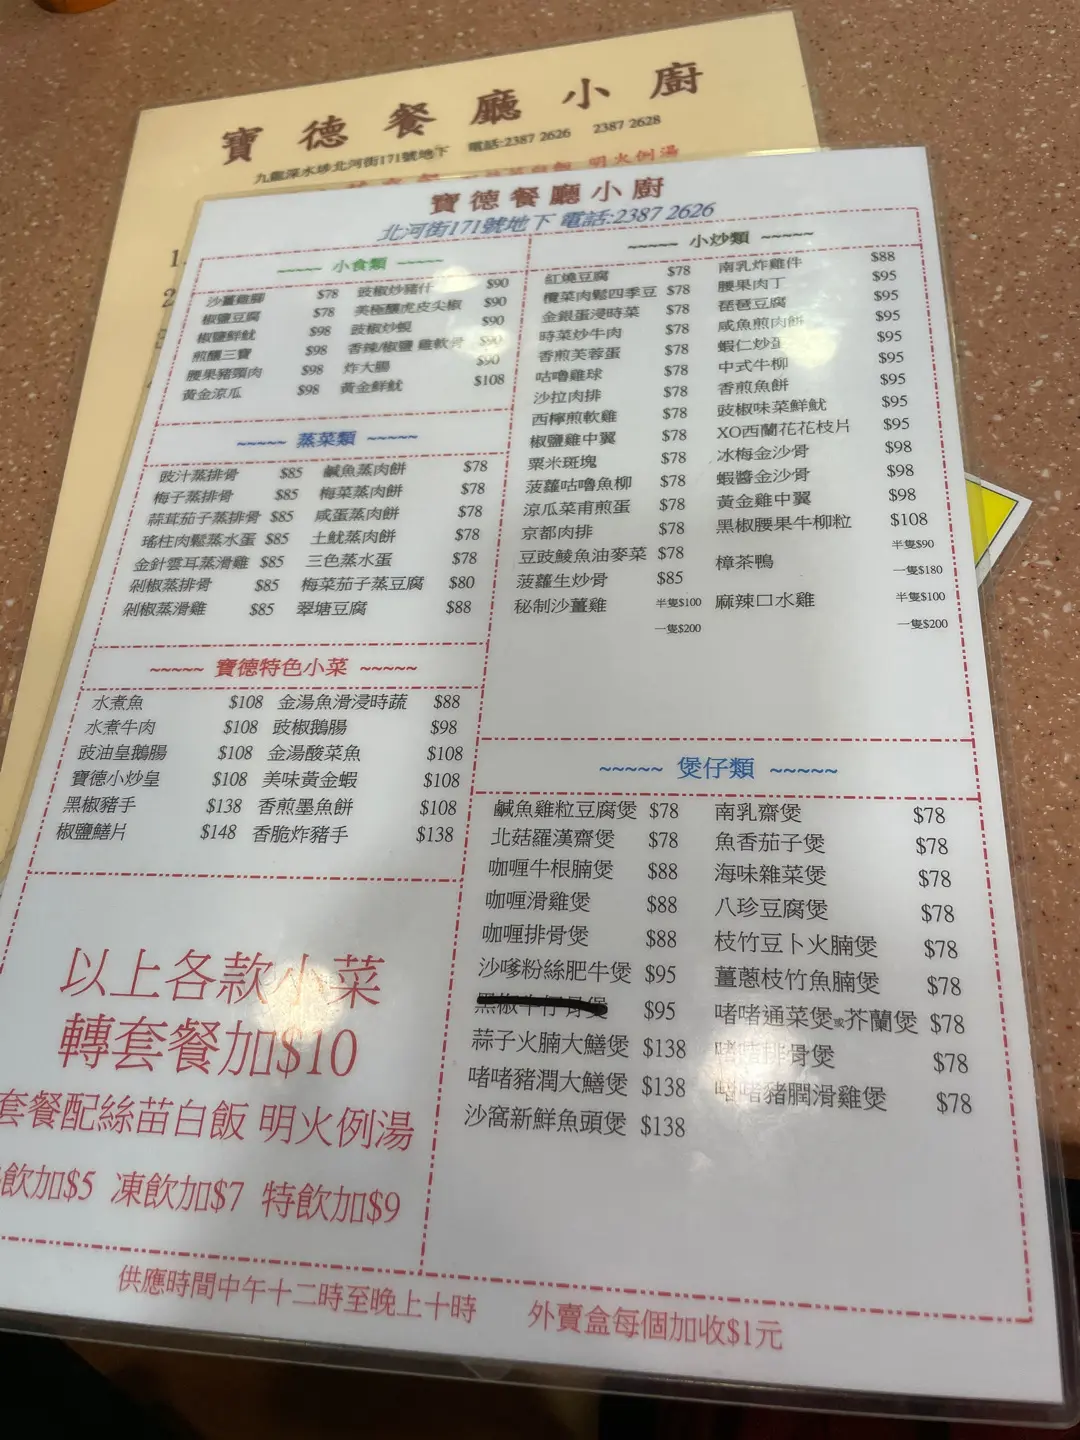 寶德餐廳小廚
九龍深水埗北河街171號地下 電話:2387 2626 2387 2628
明火例湯
寶德餐廳小廚
北河街171號地下 電話:2387 2626
~~~~~ 小食類 ~~~~~
沙薑雞腳 $78 豉椒炒豬什 $90
椒鹽豆腐 $78 美極釀虎皮尖椒 $90
椒鹽鮮魷 $98 豉椒炒蜆 $90
煎釀三寶 $98 香辣/椒鹽 雞軟骨 $90
腰果豬頸肉 $98 炸大腸 $90
黃金涼瓜 $98 黃金鮮魷 $108
~~~~~ 蒸菜類 ~~~~~
豉汁蒸排骨 $85 鹹魚蒸肉餅 $78
梅子蒸排骨 $85 梅菜蒸肉餅 $78
蒜茸茄子蒸排骨 $85 咸蛋蒸肉餅 $78
瑤柱肉鬆蒸水蛋 $85 土魷蒸肉餅 $78
金針雲耳蒸滑雞 $85 三色蒸水蛋 $78
剁椒蒸排骨 $85 梅菜茄子蒸豆腐 $80
剁椒蒸滑雞 $85 翠塘豆腐 $88
~~~~~ 寶德特色小菜 ~~~~~
水煮魚 $108 金湯魚滑浸時蔬 $88
水煮牛肉 $108 豉椒鵝腸 $98
豉油皇鵝腸 $108 金湯酸菜魚 $108
寶德小炒皇 $108 美味黃金蝦 $108
黑椒豬手 $138 香煎墨魚餅 $108
椒鹽鱔片 $148 香脆炸豬手 $138
以上各款小菜
轉套餐加$10
套餐配絲苗白飯 明火例湯
飲加$5 凍飲加$7 特飲加$9
~~~~~ 小炒類 ~~~~~
紅燒豆腐 $78 南乳炸雞件 $88
欖菜肉鬆四季豆 $78 腰果肉丁 $95
金銀蛋浸時菜 $78 琵琶豆腐 $95
時菜炒牛肉 $78 咸魚煎肉餅 $95
香煎芙蓉蛋 $78 蝦仁炒蛋 $95
咕嚕雞球 $78 中式牛柳 $95
沙拉肉排 $78 香煎魚餅 $95
西檸煎軟雞 $78 豉椒味菜鮮魷 $95
椒鹽雞中翼 $78 XO西蘭花花枝片 $95
粟米斑塊 $78 冰梅金沙骨 $98
菠蘿咕嚕魚柳 $78 蝦醬金沙骨 $98
涼瓜菜甫煎蛋 $78 黃金雞中翼 $98
京都肉排 $78 黑椒腰果牛柳粒 $108
豆豉鯪魚油麥菜 $78 樟茶鴨 半隻$90
菠蘿生炒骨 $85 一隻$180
秘制沙薑雞 半隻$100 麻辣口水雞 半隻$100
一隻$200 一隻$200
~~~~~ 煲仔類 ~~~~~
鹹魚雞粒豆腐煲 $78 南乳齋煲 $78
北菇羅漢齋煲 $78 魚香茄子煲 $78
咖喱牛根腩煲 $88 海味雜菜煲 $78
咖喱滑雞煲 $88 八珍豆腐煲 $78
咖喱排骨煲 $88 枝竹豆卜火腩煲 $78
沙嗲粉絲肥牛煲 $95 薑蔥枝竹魚腩煲 $78
黑椒牛仔骨煲 $95 啫啫通菜煲或芥蘭煲 $78
蒜子火腩大鱔煲 $138 啫啫排骨煲 $78
啫啫豬潤大鱔煲 $138 啫啫豬膶滑雞煲 $78
沙窩新鮮魚頭煲 $138
供應時間中午十二時至晚上十時 外賣盒每個加收$1元